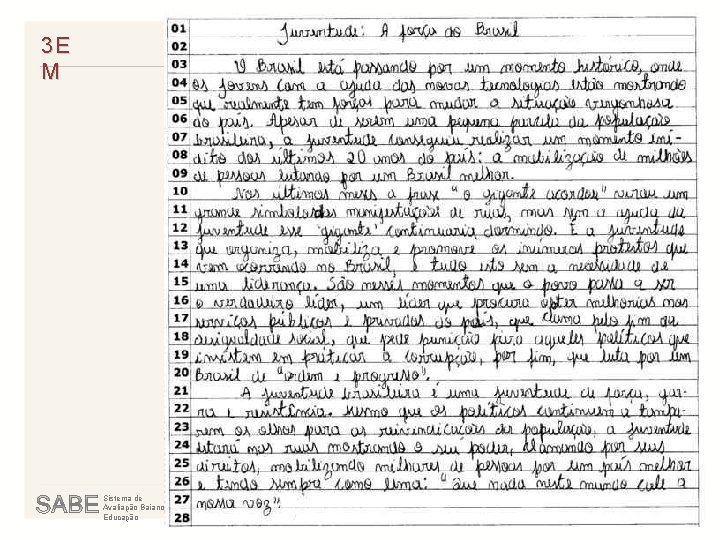 3 E
M
01 Juventude: A força do Brasil
02
03 O Brasil está passando por um momento histórico, onde
04 os jovens com a ajuda das novas tecnologias estão mostrando
05 que realmente tem forças para mudar a situação vergonhosa
06 do país. Apesar de serem uma pequena parcela da população
07 brasileira, a juventude conseguiu realizar um momento iné-
08 dito dos últimos 20 anos do país: a mobilização de milhões
09 de pessoas lutando por um Brasil melhor.
10 Nos últimos meses a frase "o gigante acordou" virou um
11 grande símbolo das manifestações de ruas, mas sem a ajuda da
12 juventude esse 'gigante' continuaria dormindo. É a juventude
13 que organiza, mobiliza e promove os inúmeros protestos que
14 vem ocorrendo no Brasil, e tudo isto sem a necessidade de
15 uma liderança. São nesses momentos que o povo passa a ser
16 o verdadeiro líder, um líder que procura obter melhorias nos
17 serviços públicos e privados do país, que clama pelo fim da
18 desigualdade social, que pede punição para aqueles políticos que
19 insistem em praticar a corrupção, por fim, que luta por um
20 Brasil de "ordem e progresso".
21 A juventude brasileira é uma juventude de força, gar-
22 ra e resistência. Mesmo que os políticos continuem a tampa-
23 rem os olhos para as reivindicações da população, a juventude
24 estará nas ruas mostrando o seu poder, clamando por seus
25 direitos, mobilizando milhares de pessoas por um país melhor
26 e tendo sempre como lema: "Que nada neste mundo cale a
27 nossa voz".
28
SABE Sistema de
Avaliação Baiano
Educação